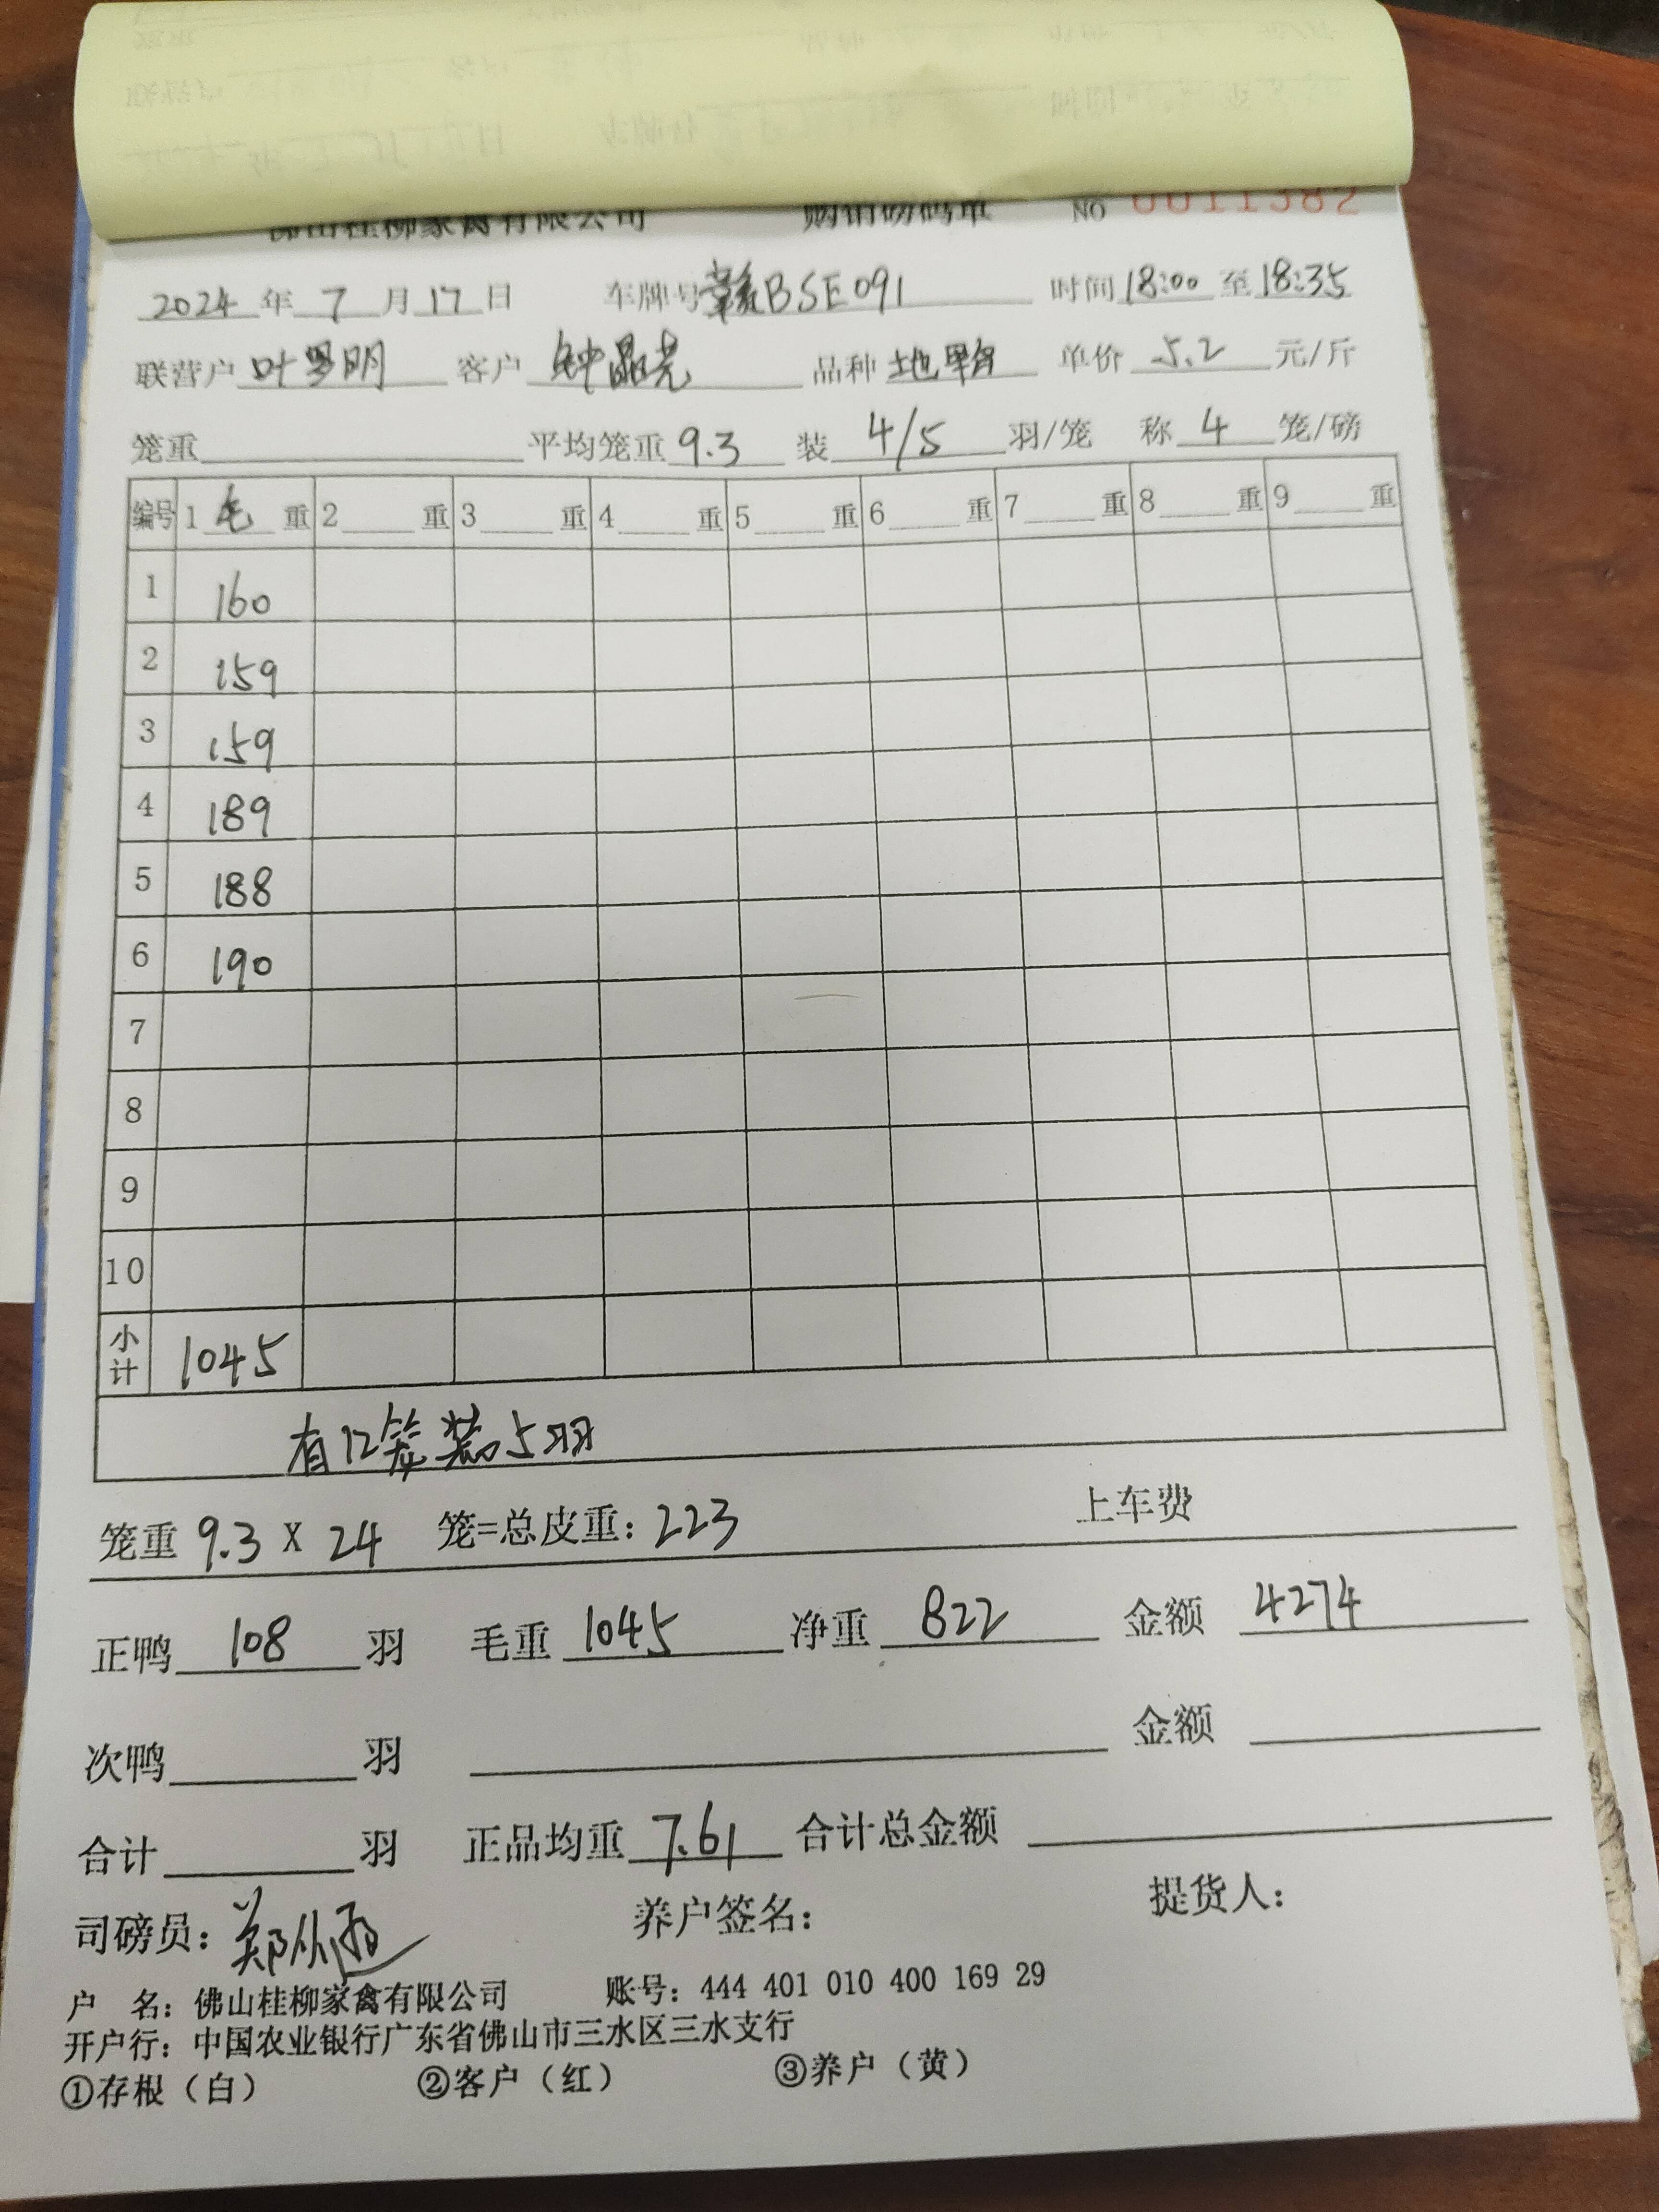 佛山桂柳家禽有限公司 购销磅码单 NO 0011382
2024年7月17日 车牌号赣BSE091 时间18:00至18:35
联营户 叶罗明 客户 钟晶亮 品种 单价 5.2 元/斤
笼重 平均笼重 9.3 装 4/5 羽/笼 称 4 笼/磅
编号 1 毛 重 2 重 3 重 4 重 5 重 6 重 7 重 8 重 9 重
1 160
2 159
3 159
4 189
5 188
6 190
7
8
9
10
小计 1045
有12笼装5羽
笼重 9.3 X 24 笼=总皮重: 223 上车费
正鸭 108 羽 毛重 1045 净重 822 金额 4274
次鸭 羽 金额
合计 羽 正品均重 7.61 合计总金额
司磅员: 养户签名: 提货人:
户 名: 佛山桂柳家禽有限公司 账号: 444 401 010 400 169 29
开户行: 中国农业银行广东省佛山市三水区三水支行
①存根（白） ②客户（红） ③养户（黄）